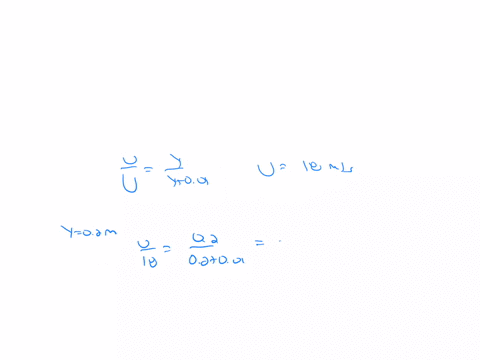 u/U = y/(y+0.01) U = 18 m/s
y=0.2m u/18 = 0.2/(0.2+0.01) =